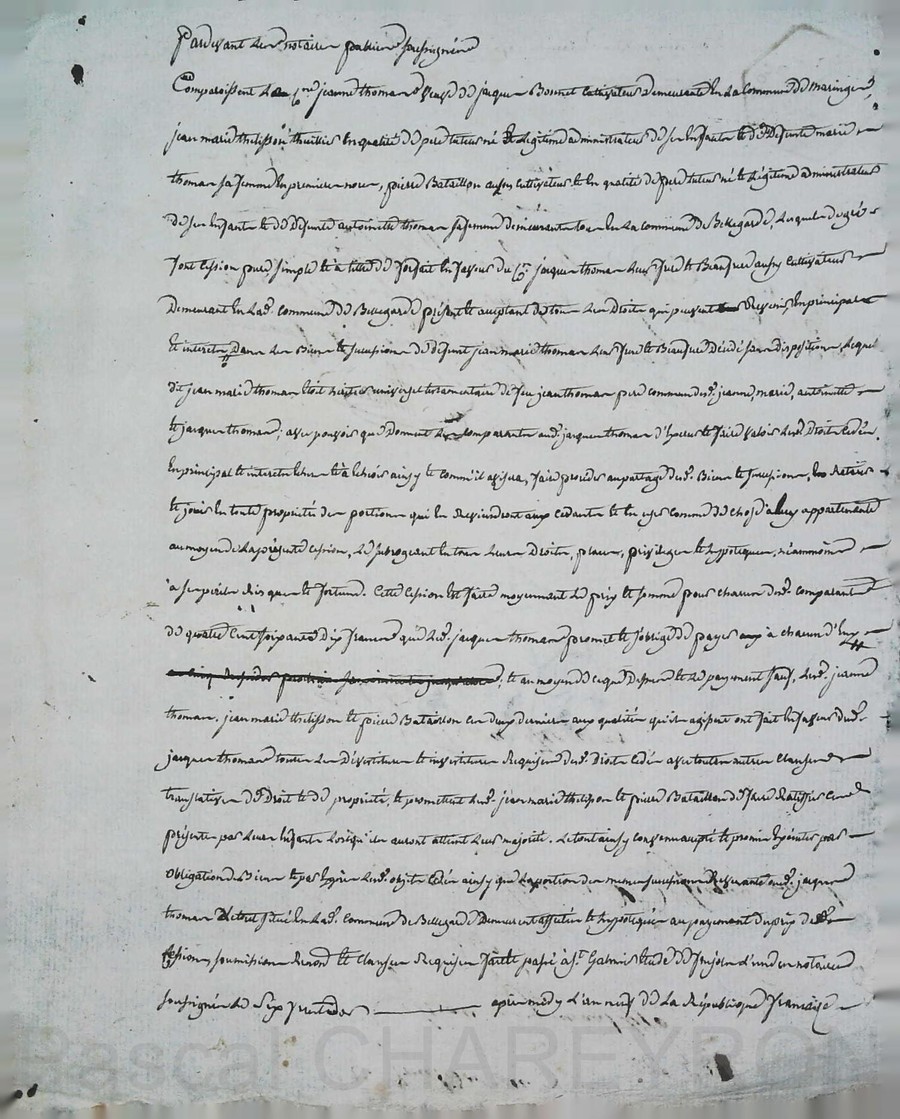 Pardevant les notaires publics soussignés
Comparoissent la Cne jeanne thomas veuve de jacques Bonnet cultivateur demeurante en la commune de maringes,
jean marie thelisson thuillier en qualité de pere tuteur né et legitime administrateur de ses enfants et de defunte marie
thomas sa femme en premieres noces, pierre Bataillon aussy cultivateur et en qualité de pere tuteur né et legitime administrateur
de ses enfants et de defunte antoinette thomas sa femme demeurants tous en la commune de Bellegarde, lesquels de gré
font cession pure simple et a titre de forfait en faveur du Cn. jacques thomas leur frere et Beaufrere aussy cultivateur
Demeurant en lad. commune de Bellegarde présent et acceptant de tous les Droits qui peuvent Revenir, en principal
et interets Dans les Biens et succession de défunt jean marie thomas leur frere et Beaufrere décédé sans disposition, lequel
dit jean marie thomas étoit heritier universel testamentaire de feu jean thomas pere commun desd. jeanne, marie, antoinette
et jacques thomas; avec pouvoir que donnent les comparants aud. jacques thomas d'exercer et faire valoir lesd. Droits cédés,
en principal et interets échus et à echoir ainsy et comm'il avisera, faire proceder au partage desd. Biens et succession, les Retirer
et jouir en toute propriété des portions qui en Reviendront aux cedants et en user comme de chose a luy appartenante
au moyen de la présente cession, le subrogeant en tous leurs Droits, places, privileges et hypoteques, néammoins
à ses perils risques et fortune. Cette cession est faite moyennant le prix et somme pour chacun desd. comparants
de quatre Cent soixante Dix francs que led. jacques thomas promet et s'oblige de payer à chacun d'Eux
; et au moyen de ce que Dessus et le payement fait, lesd. jeanne
thomas, jean marie thelisson et pierre Bataillon ces deux derniers aux qualités qu'ils agissent ont fait en faveur dud.
jacques thomas toutes les Devestitures et investitures Requises desd. Droits cédés avec toutes autres clauses
translatives de Droit et de propriété, et promettent lesd. jean marie thelisson et pierre Bataillon de faire Ratiffier ces
présentes par leurs Enfants lorsqu'ils auront atteint leur majorité. Le tout ainsy convenu accepté et promis Exécuter par
obligation de Biens et par Exprès lesd. objets cédés ainsy que la portion des memes successions Revenante aud. jacques
thomas situé en lad. Commune de Bellegarde Demeurent affectés et hypotequés au payement du prix de
cession, soumission Renon. et clauses Requises fait et passé à St. Galmier Etude de l'un des notaires
soussignés le Six fructidor apres midy l'an neuf de la République françaïse